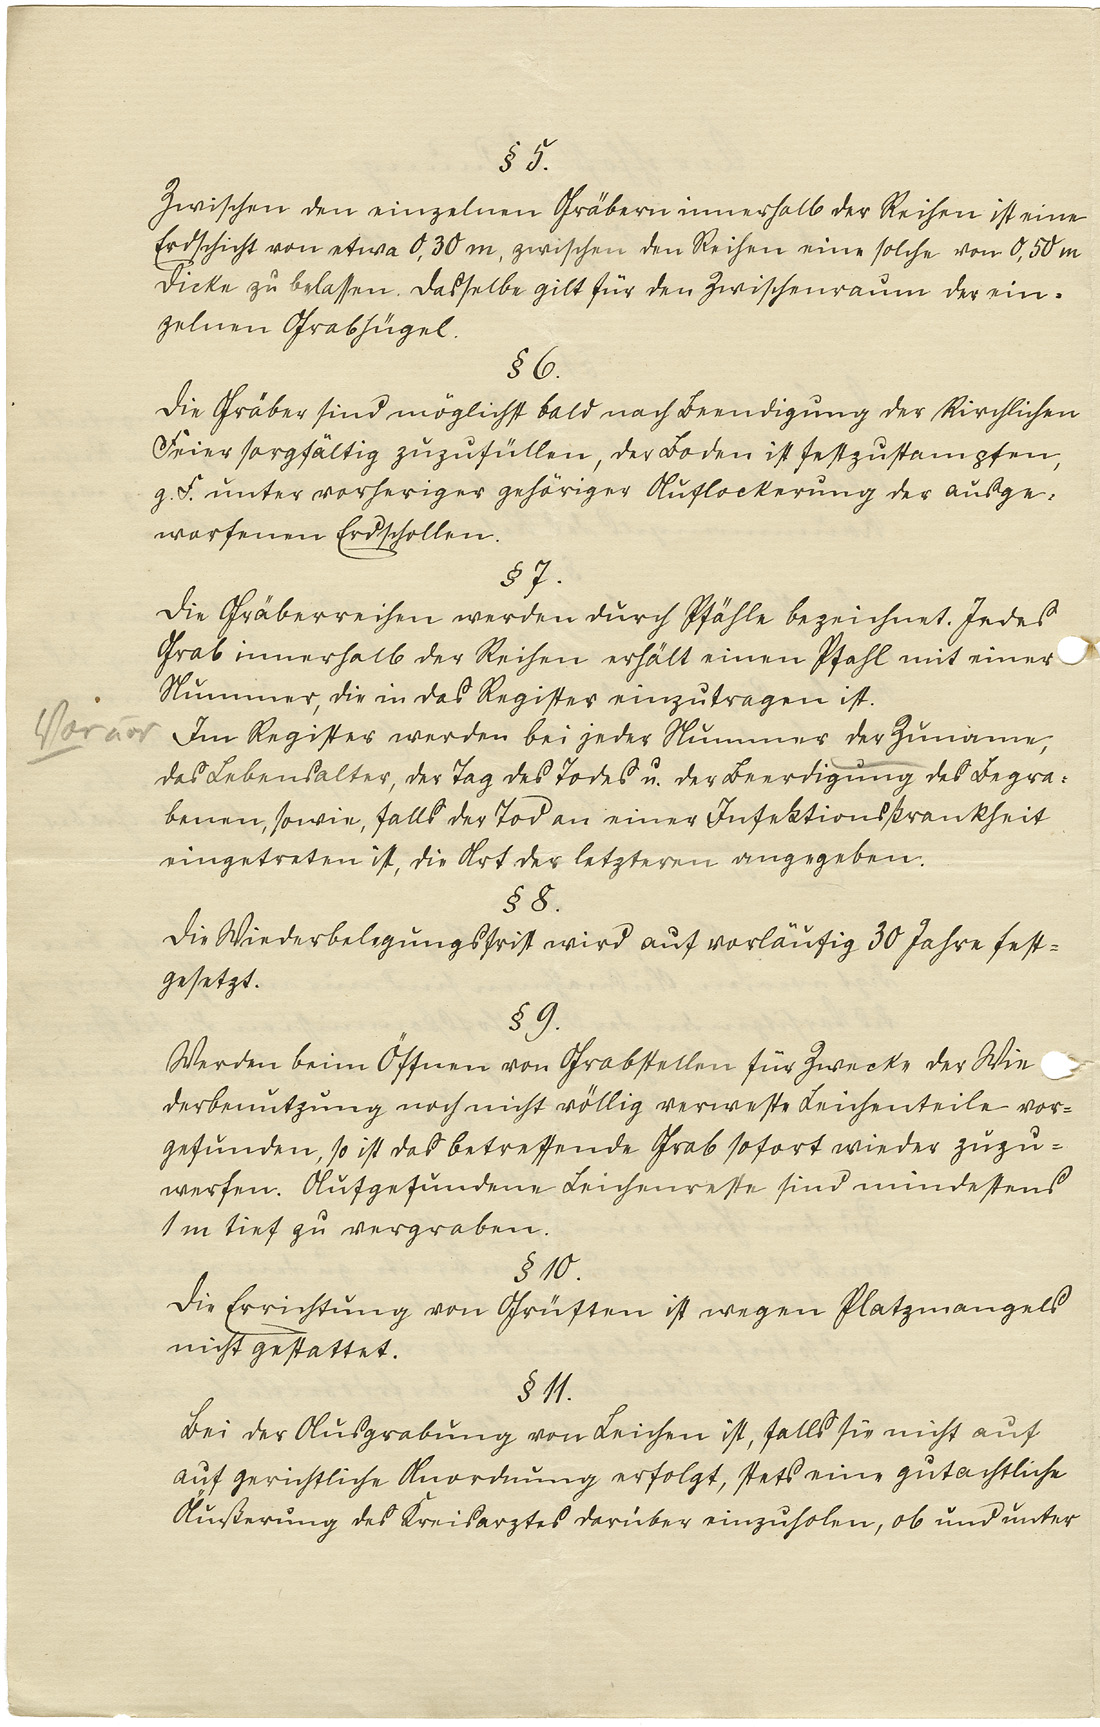 § 5.
Zwischen den einzelnen Gräbern innerhalb der Reihen ist eine
Erdschicht von etwa 0,30 m, zwischen den Reihen eine solche von 0,50 m
Dicke zu belassen. Dasselbe gilt für den Zwischenraum der ein-
zelnen Grabhügel.
§ 6.
Die Gräber sind möglichst bald nach Beendigung der Kirchlichen
Feier sorgfältig zuzufüllen, der Boden ist festzustampfen,
g. F. unter vorheriger gehöriger Auflockerung der ausge-
worfenen Erdschollen.
§ 7.
Die Gräberreihen werden durch Pfähle bezeichnet. Jedes
Grab innerhalb der Reihen erhält einen Pfahl mit einer
Nummer, die in das Register einzutragen ist.
Im Register werden bei jeder Nummer der Zuname,
das Lebensalter, der Tag des Todes u. der Beerdigung des Begra-
benen, sowie, falls der Tod an einer Infektionskrankheit
eingetreten ist, die Art der letzteren angegeben.
§ 8.
Die Wiederbelegungsfrist wird auf vorläufig 30 Jahre fest=
gesetzt.
§ 9.
Werden beim Öffnen von Grabstellen für Zwecke der Wie
derbenutzung noch nicht völlig verweste Leichenteile vor=
gefunden, so ist das betreffende Grab sofort wieder zuzu=
werfen. Aufgefundene Leichenreste sind mindestens
1 m tief zu vergraben.
§ 10.
Die Errichtung von Grüften ist wegen Platzmangels
nicht gestattet.
§ 11.
Bei der Ausgrabung von Leichen ist, falls sie nicht auf
auf gerichtliche Anordnung erfolgt, stets eine gutachtliche
Äußerung des Kreisarztes darüber einzuholen, ob und unter